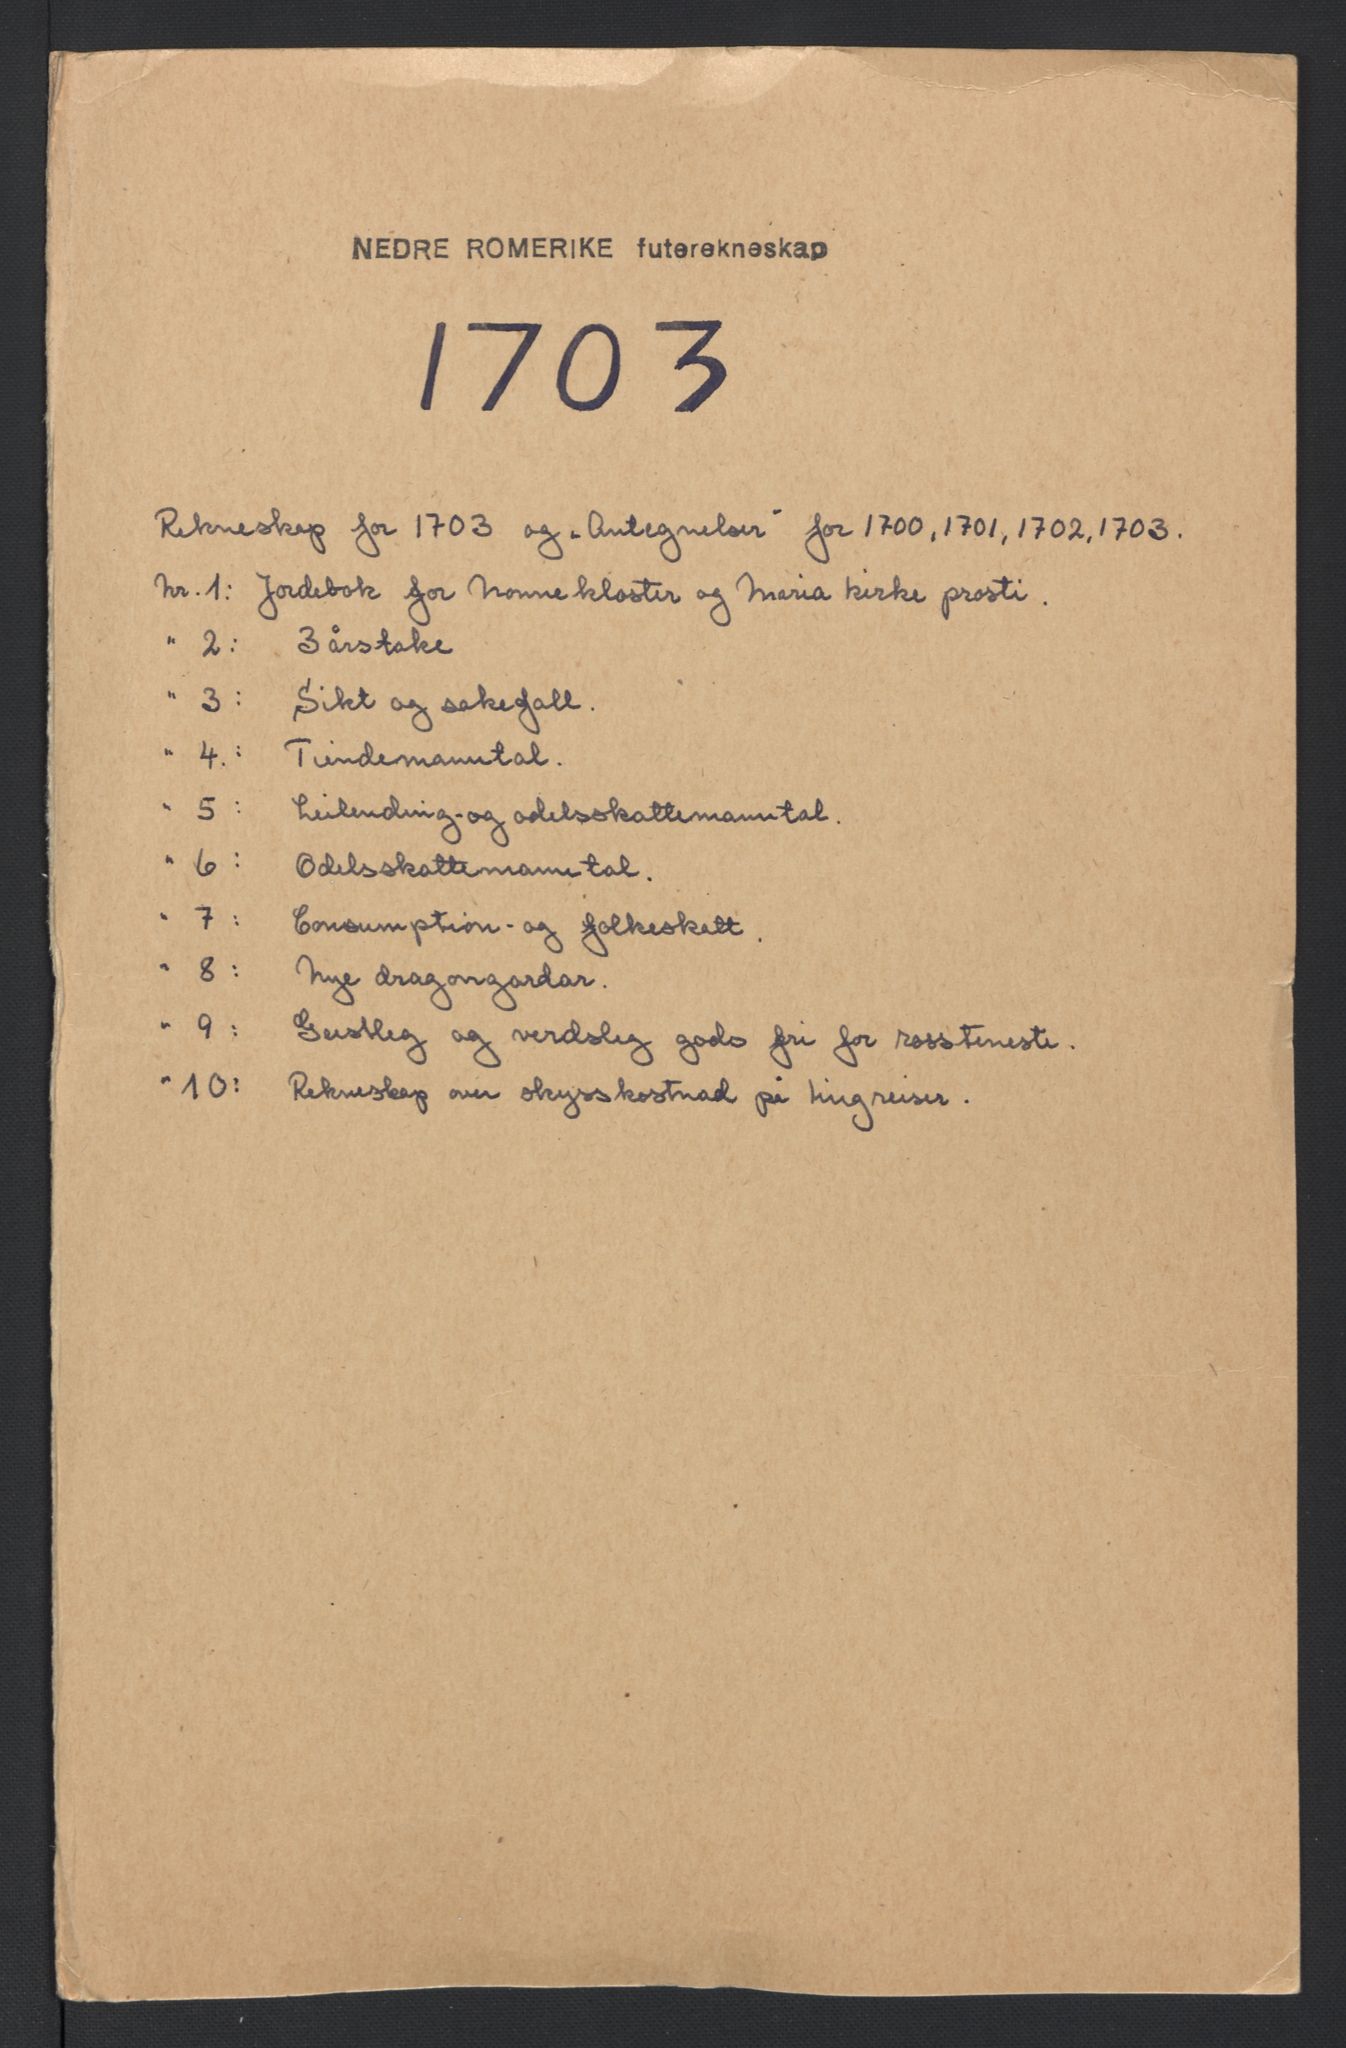 NEDRE ROMERIKE futerekneskap
1703
Rekneskap for 1703 og „Antegnelser" for 1700, 1701, 1702, 1703.
Nr. 1: Jordebok for Nonnekloster og Maria kirke prosti.
" 2: 3 årstake
" 3: Sikt og sakefall.
" 4.: Tiendemanntal.
" 5: Leilending- og odelsskattemanntal.
" 6: Odelsskattemanntal.
" 7: Consumption- og folkeskatt.
" 8: Nye dragongardar.
" 9: Geistleg og verdsleg gods fri for rossteneste.
" 10: Rekneskap over skysskostnad på tingreiser.